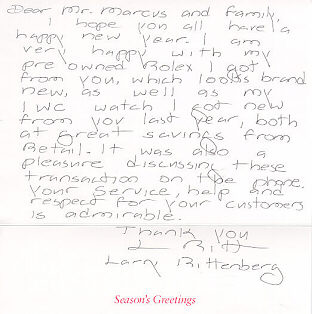 Dear Mr. Marcus and family,
I hope you all have a
happy new year. I am
very happy with my
pre owned Rolex I got
from you, which looks brand
new, as well as my
IWC watch I got new
from you last year, both
at great savings from
Retail. It was also a
pleasure discussing these
transaction on the phone.
Your service, help and
respect for your customers
is admirable.
Thank you
L Ritt
Larry Rittenberg
Season's Greetings